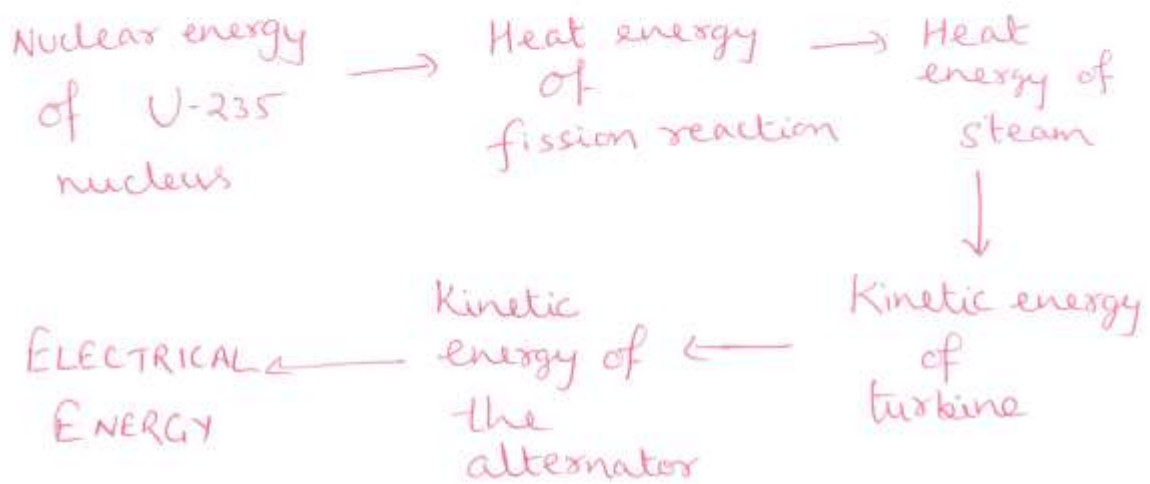 Nuclear energy
of U-235
nucleus
Heat energy
of
fission reaction
Heat
energy of
steam
Kinetic energy
of
turbine
Kinetic
energy of
the
alternator
ELECTRICAL
ENERGY